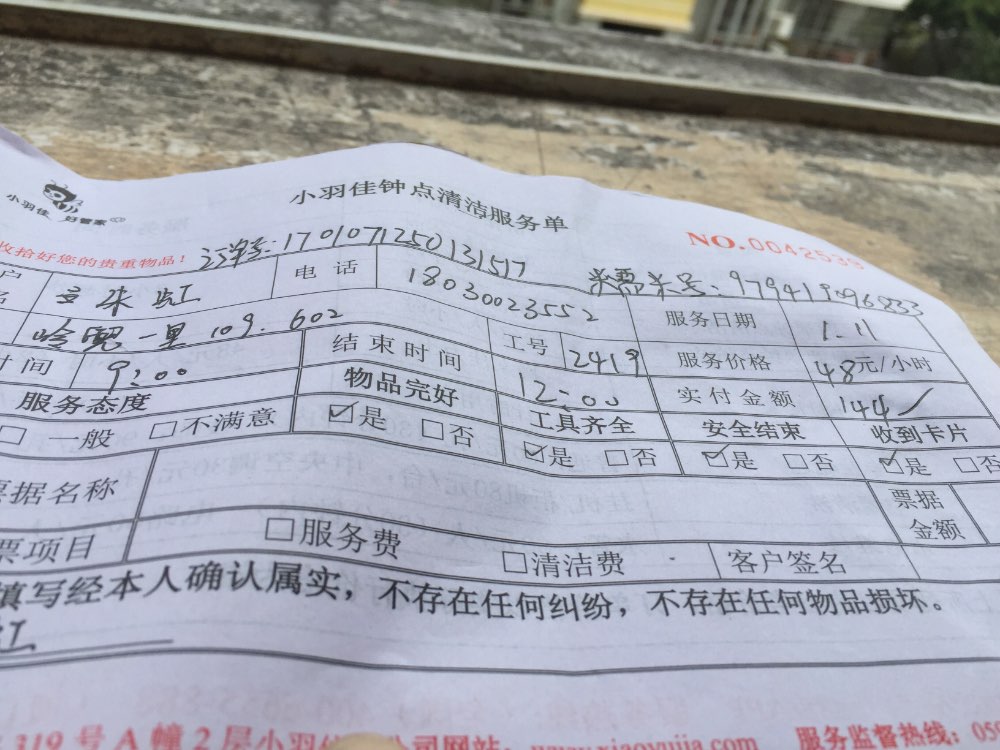 小羽佳 好管家
小羽佳钟点清洁服务单
NO.0042539
收拾好您的贵重物品！
订单号：1701071250131517
券票券号：979419096833
户 朱虹 电话 18030023552 服务日期 1.11
一里 109.602 工号 2419 服务价格 48元/小时
时间 9:00 结束时间 12:00 实付金额 144
服务态度 物品完好 工具齐全 安全结束 收到卡片
□一般 □不满意 ☑是 □否 ☑是 □否 ☑是 □否 ☑是 □否
票据名称 票据金额
票项目 □服务费 □清洁费 客户签名
填写经本人确认属实，不存在任何纠纷，不存在任何物品损坏。
虹
319号A幢2层小羽佳 公司网站：www.xiaoyujia.com 服务监督热线：05